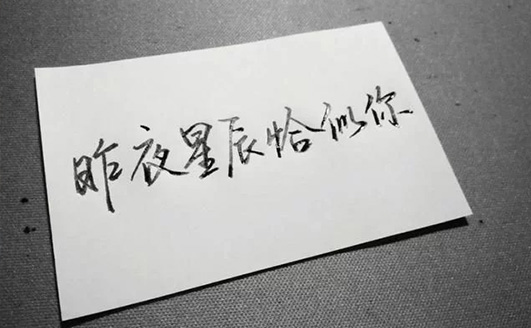 昨夜星辰恰似你